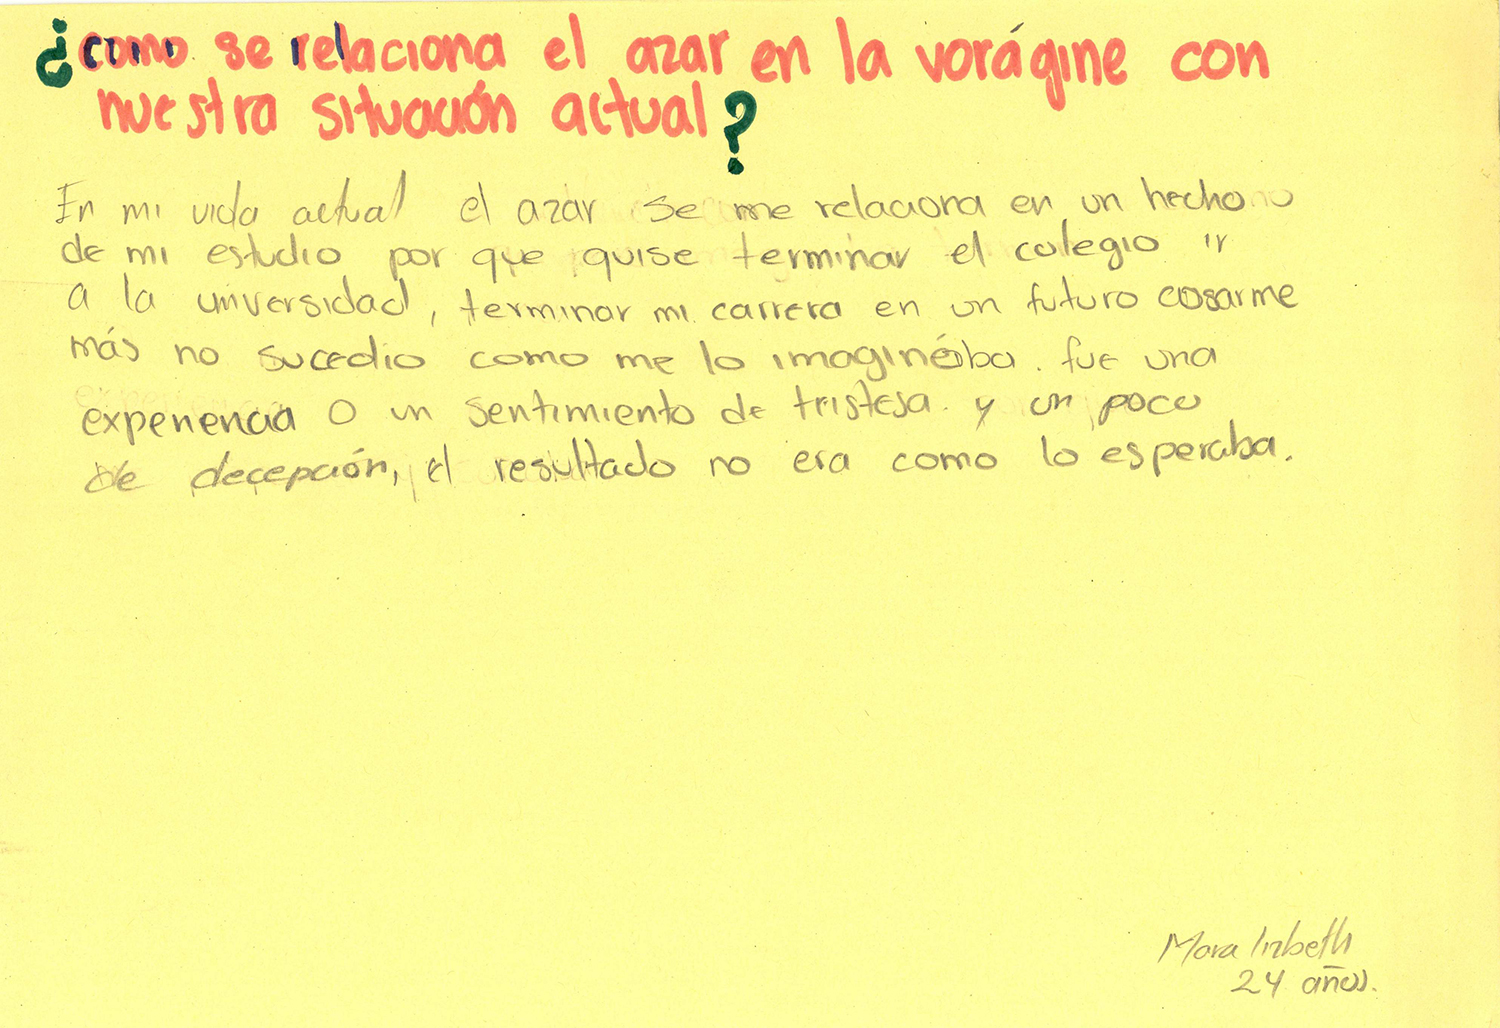 ¿como se relaciona el azar en la vorágine con
nuestra situación actual?
En mi vida actual el azar se me relaciona en un hecho
de mi estudio por que quise terminar el colegio ir
a la universidad, terminar mi carrera en un futuro casarme
más no sucedio como me lo imaginába. fue una
experiencia o un sentimiento de tristesa. y un poco
de decepción, el resultado no era como lo esperaba.
Mora lizbeth
24 años.